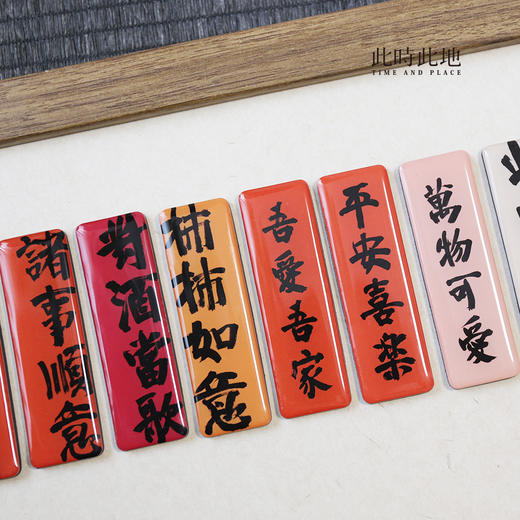 此時此地
TIME AND PLACE
諸事順意
对酒當歌
柿柿如意
吾愛吾家
平安喜樂
萬物可愛